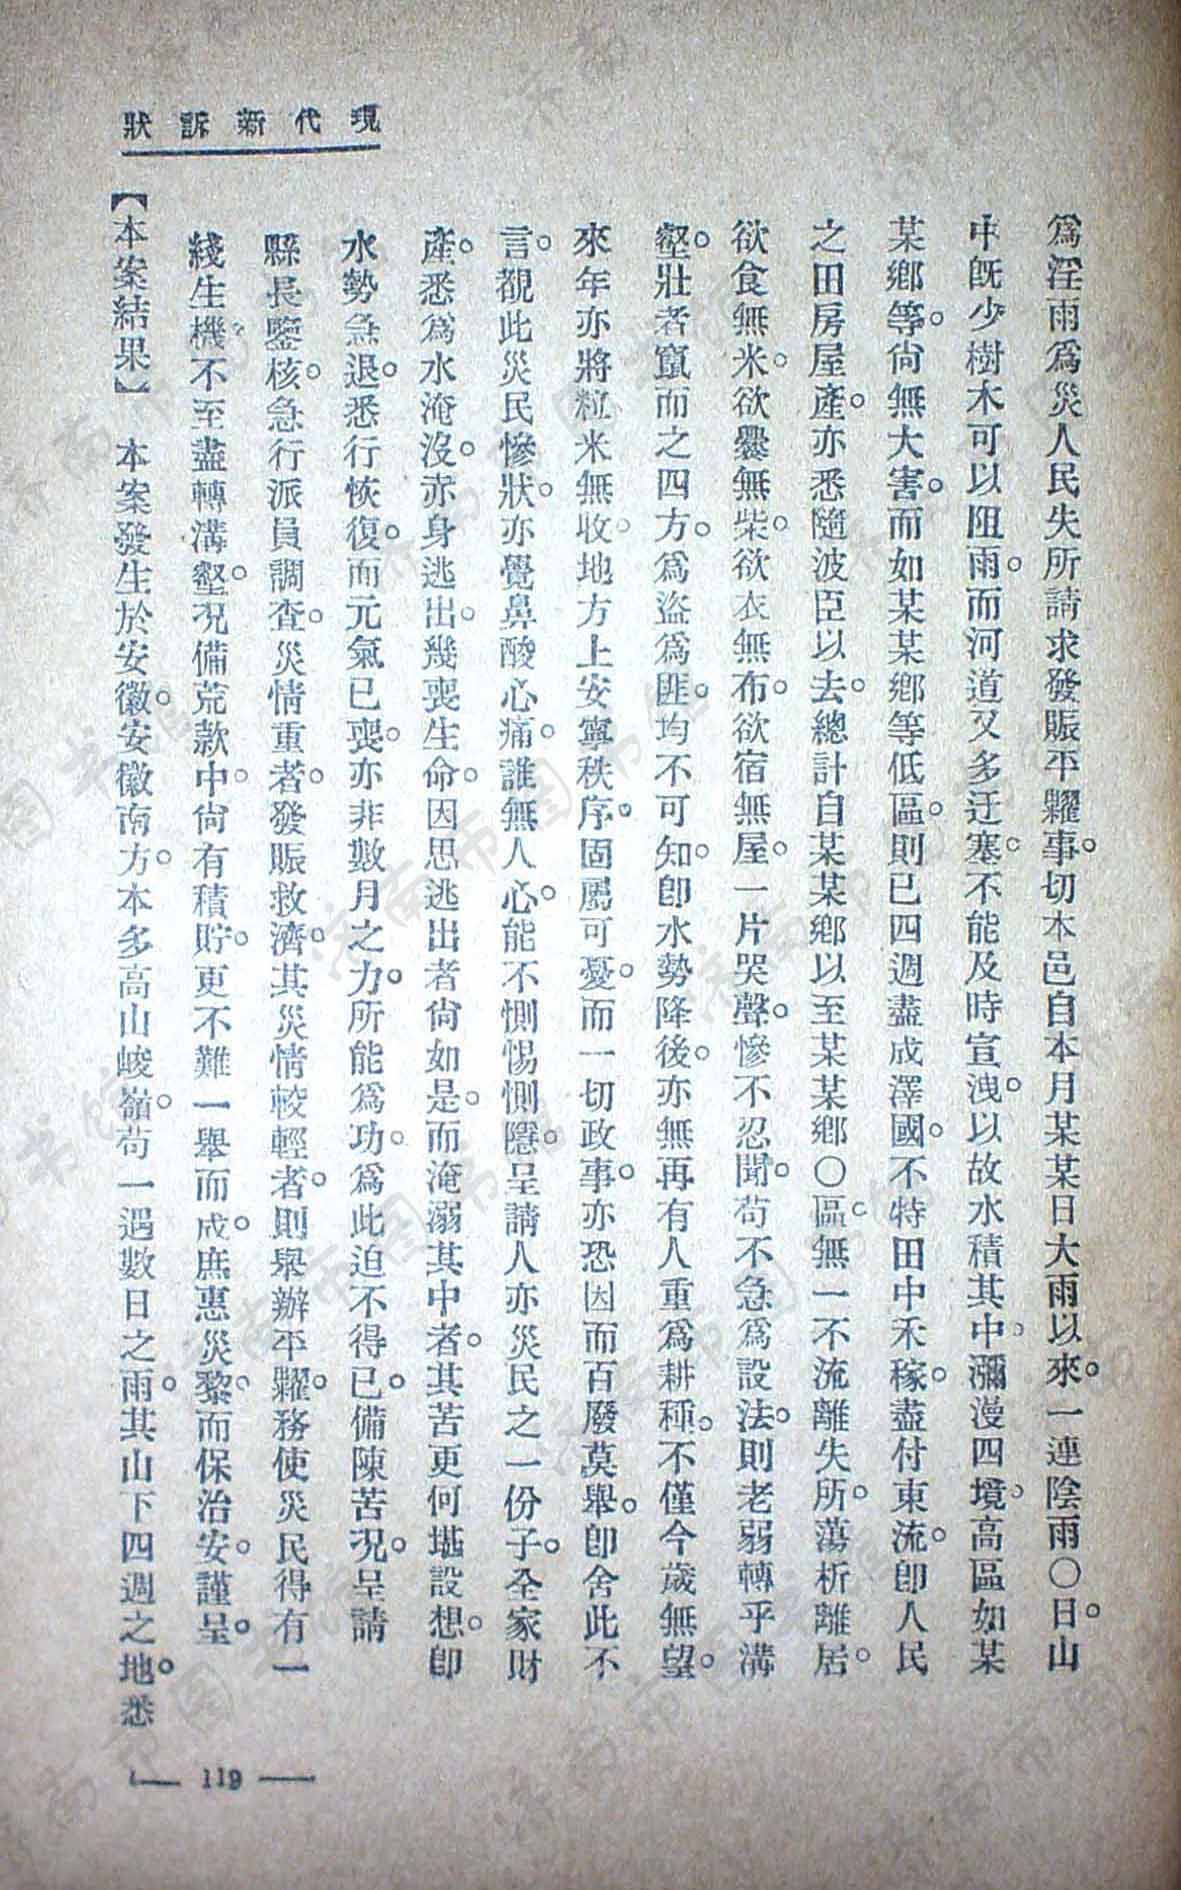 現代新訴狀
爲淫雨爲災人民失所請求發賑平糶事。切本邑自本月某某日大雨以來。一連陰雨〇日。山
中旣少樹木可以阻雨。而河道又多迂塞。不能及時宣洩。以故水積其中。瀰漫四境。高區如某
某鄉等。尙無大害。而如某某鄉等低區。則已四週盡成澤國。不特田中禾稼。盡付東流。卽人民
之田房屋產。亦悉隨波臣以去。總計自某某鄉以至某某鄉〇區。無一不流離失所。蕩析離居。
欲食無米。欲爨無柴。欲衣無布。欲宿無屋。一片哭聲。慘不忍聞。苟不急爲設法。則老弱轉乎溝
壑。壯者竄而之四方。爲盜爲匪。均不可知。卽水勢降後。亦無再有人重爲耕種。不僅今歲無望。
來年亦將粒米無收。地方上安寧秩序。固屬可憂。而一切政事。亦恐因而百廢莫舉。卽舍此不
言。覩此災民慘狀。亦覺鼻酸心痛。誰無人心。能不惻惕惻隱。呈請人亦災民之一份子。全家財
產。悉爲水淹沒。赤身逃出。幾喪生命。因思逃出者尙如是。而淹溺其中者。其苦更何堪設想。卽
水勢急退。悉行恢復。而元氣已喪。亦非數月之力。所能爲功。爲此迫不得已。備陳苦况。呈請
縣長鑒核。急行派員調查。災情重者。發賑救濟。其災情較輕者。則舉辦平糶。務使災民得有一
綫生機。不至盡轉溝壑。况備荒款中。尙有積貯。更不難一舉而成。庶惠災黎。而保治安。謹呈。
【本案結果】 本案發生於安徽。安徽南方。本多高山峻嶺。苟一遇數日之雨。其山下四週之地。悉
119
济南市图书馆